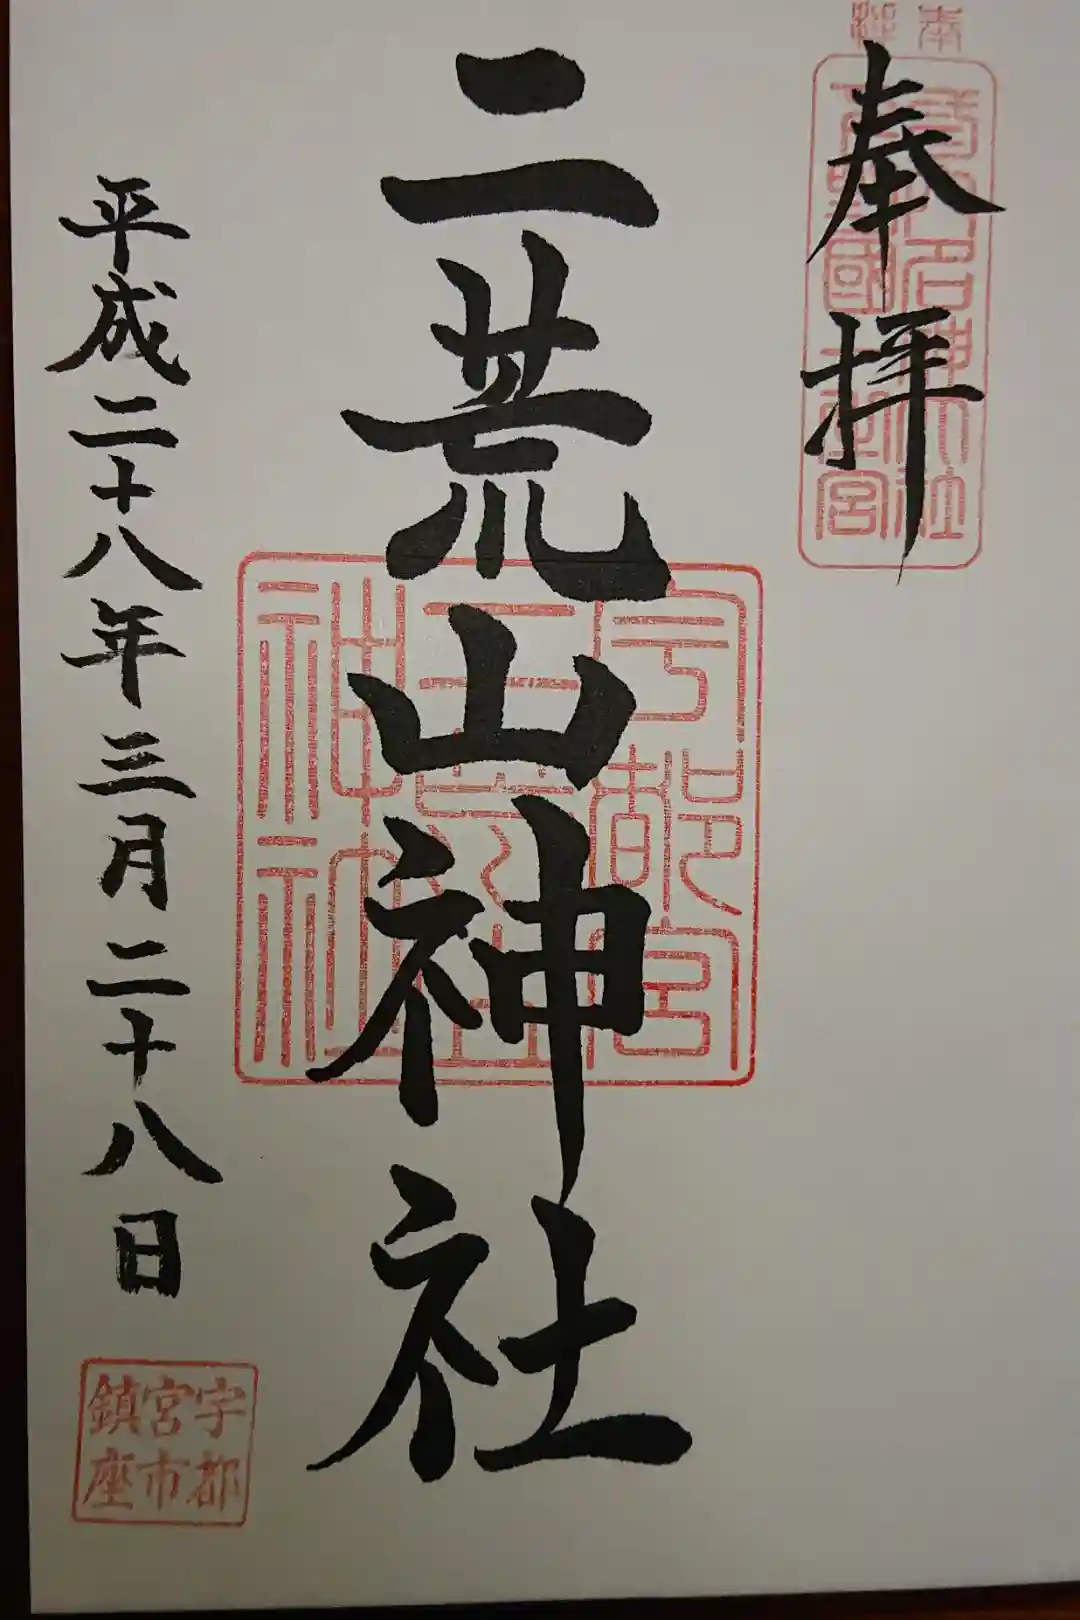 奉拝
二荒山神社
宇都宮
二荒山
神社
平成二十八年三月二十八日
宇都
宮市
鎮座